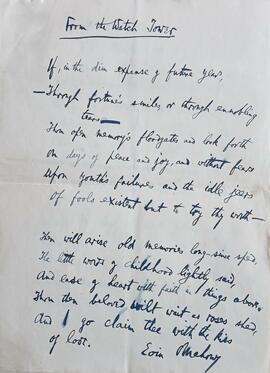 From the Watch Tower
If, in the dim expanse of future years,
— Through fortune's smiles, or through ennobling
tears —
Thou open memory's floodgates and look forth
on days of peace and joy, and without fears
Upon youth's failures and the idle jeers
Of fools existent but to try thy worth —
Then will arise old memories long since sped,
The little words of childhood lightly said,
And ease of heart with faith in things above.
Thou then beloved wilt wait as roses shed,
And I go claim thee with the kiss
of love.
Eoin O'Mahony